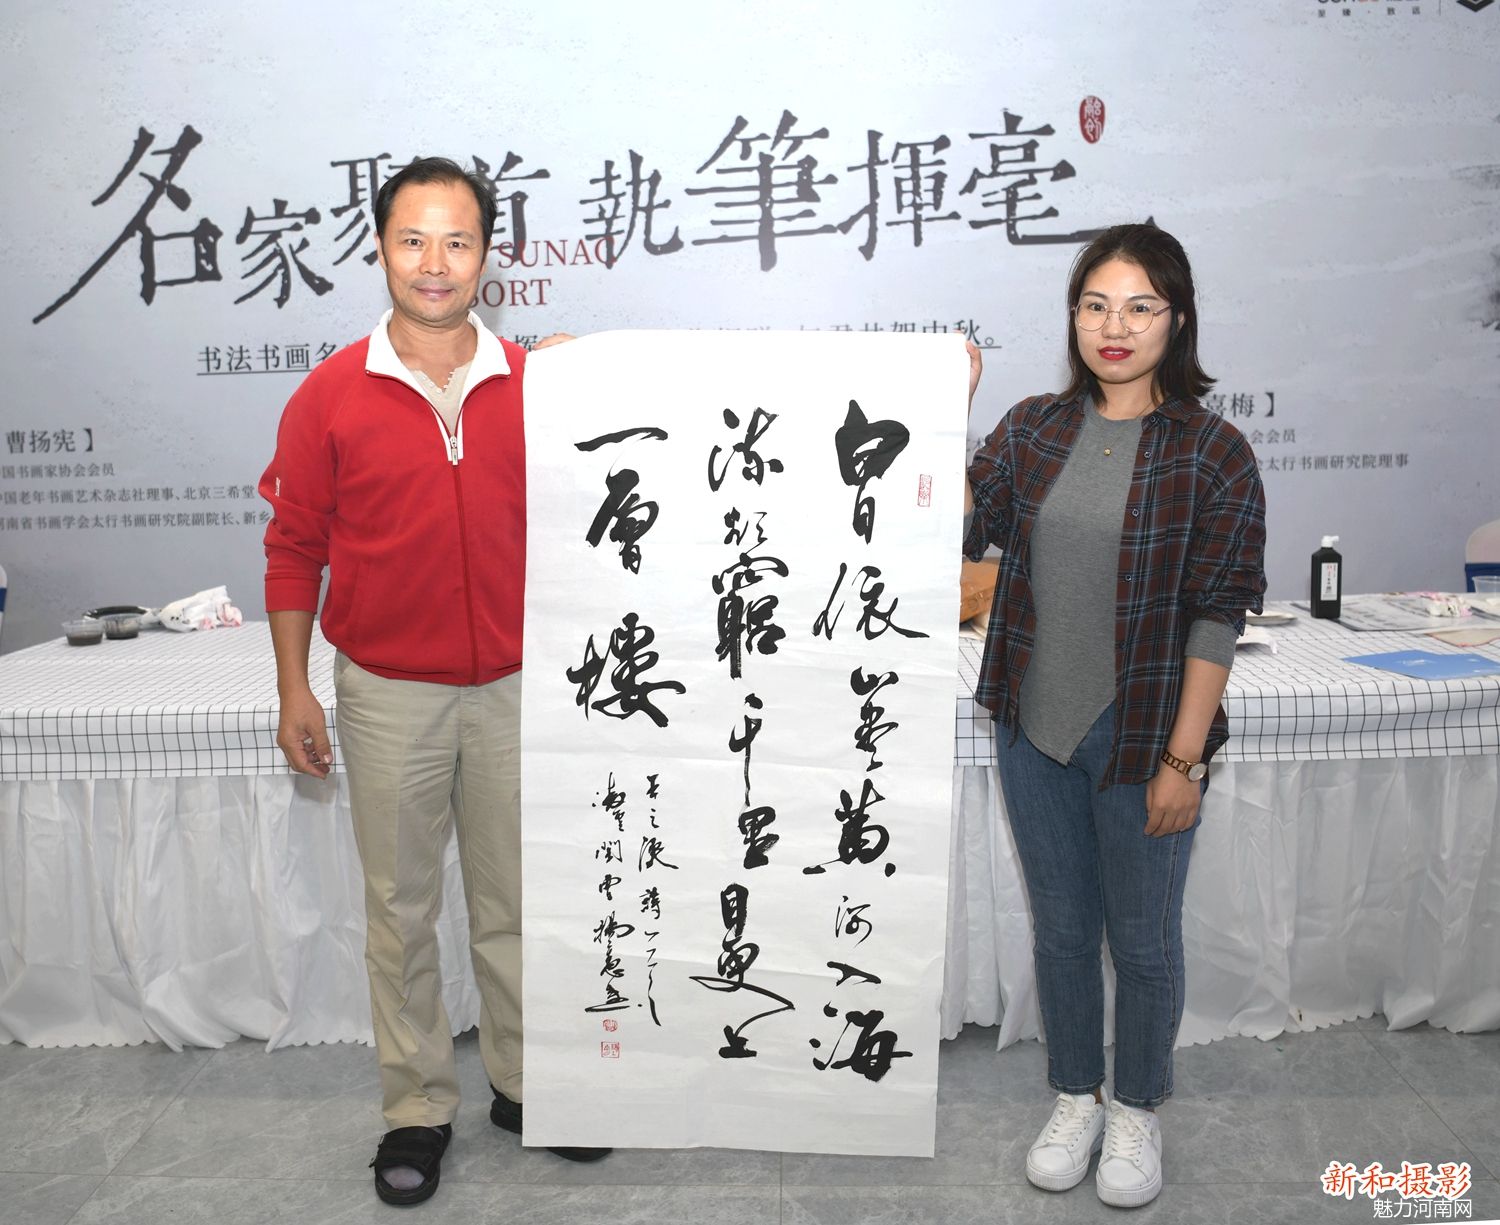 至臻·致远
名家聚首 執筆揮毫
融创
SUNAC
书法书画名
贺中秋。
曹扬宪】
国书画家协会会员
中国老年书画艺术杂志社理事、北京三希堂
河南省书画学会太行书画研究院副院长、新乡
喜梅】
会会员
会太行书画研究院理事
白日依山尽黄河入海
流欲窮千里目更上
一層樓
王之涣詩一首
新和摄影
魅力河南网